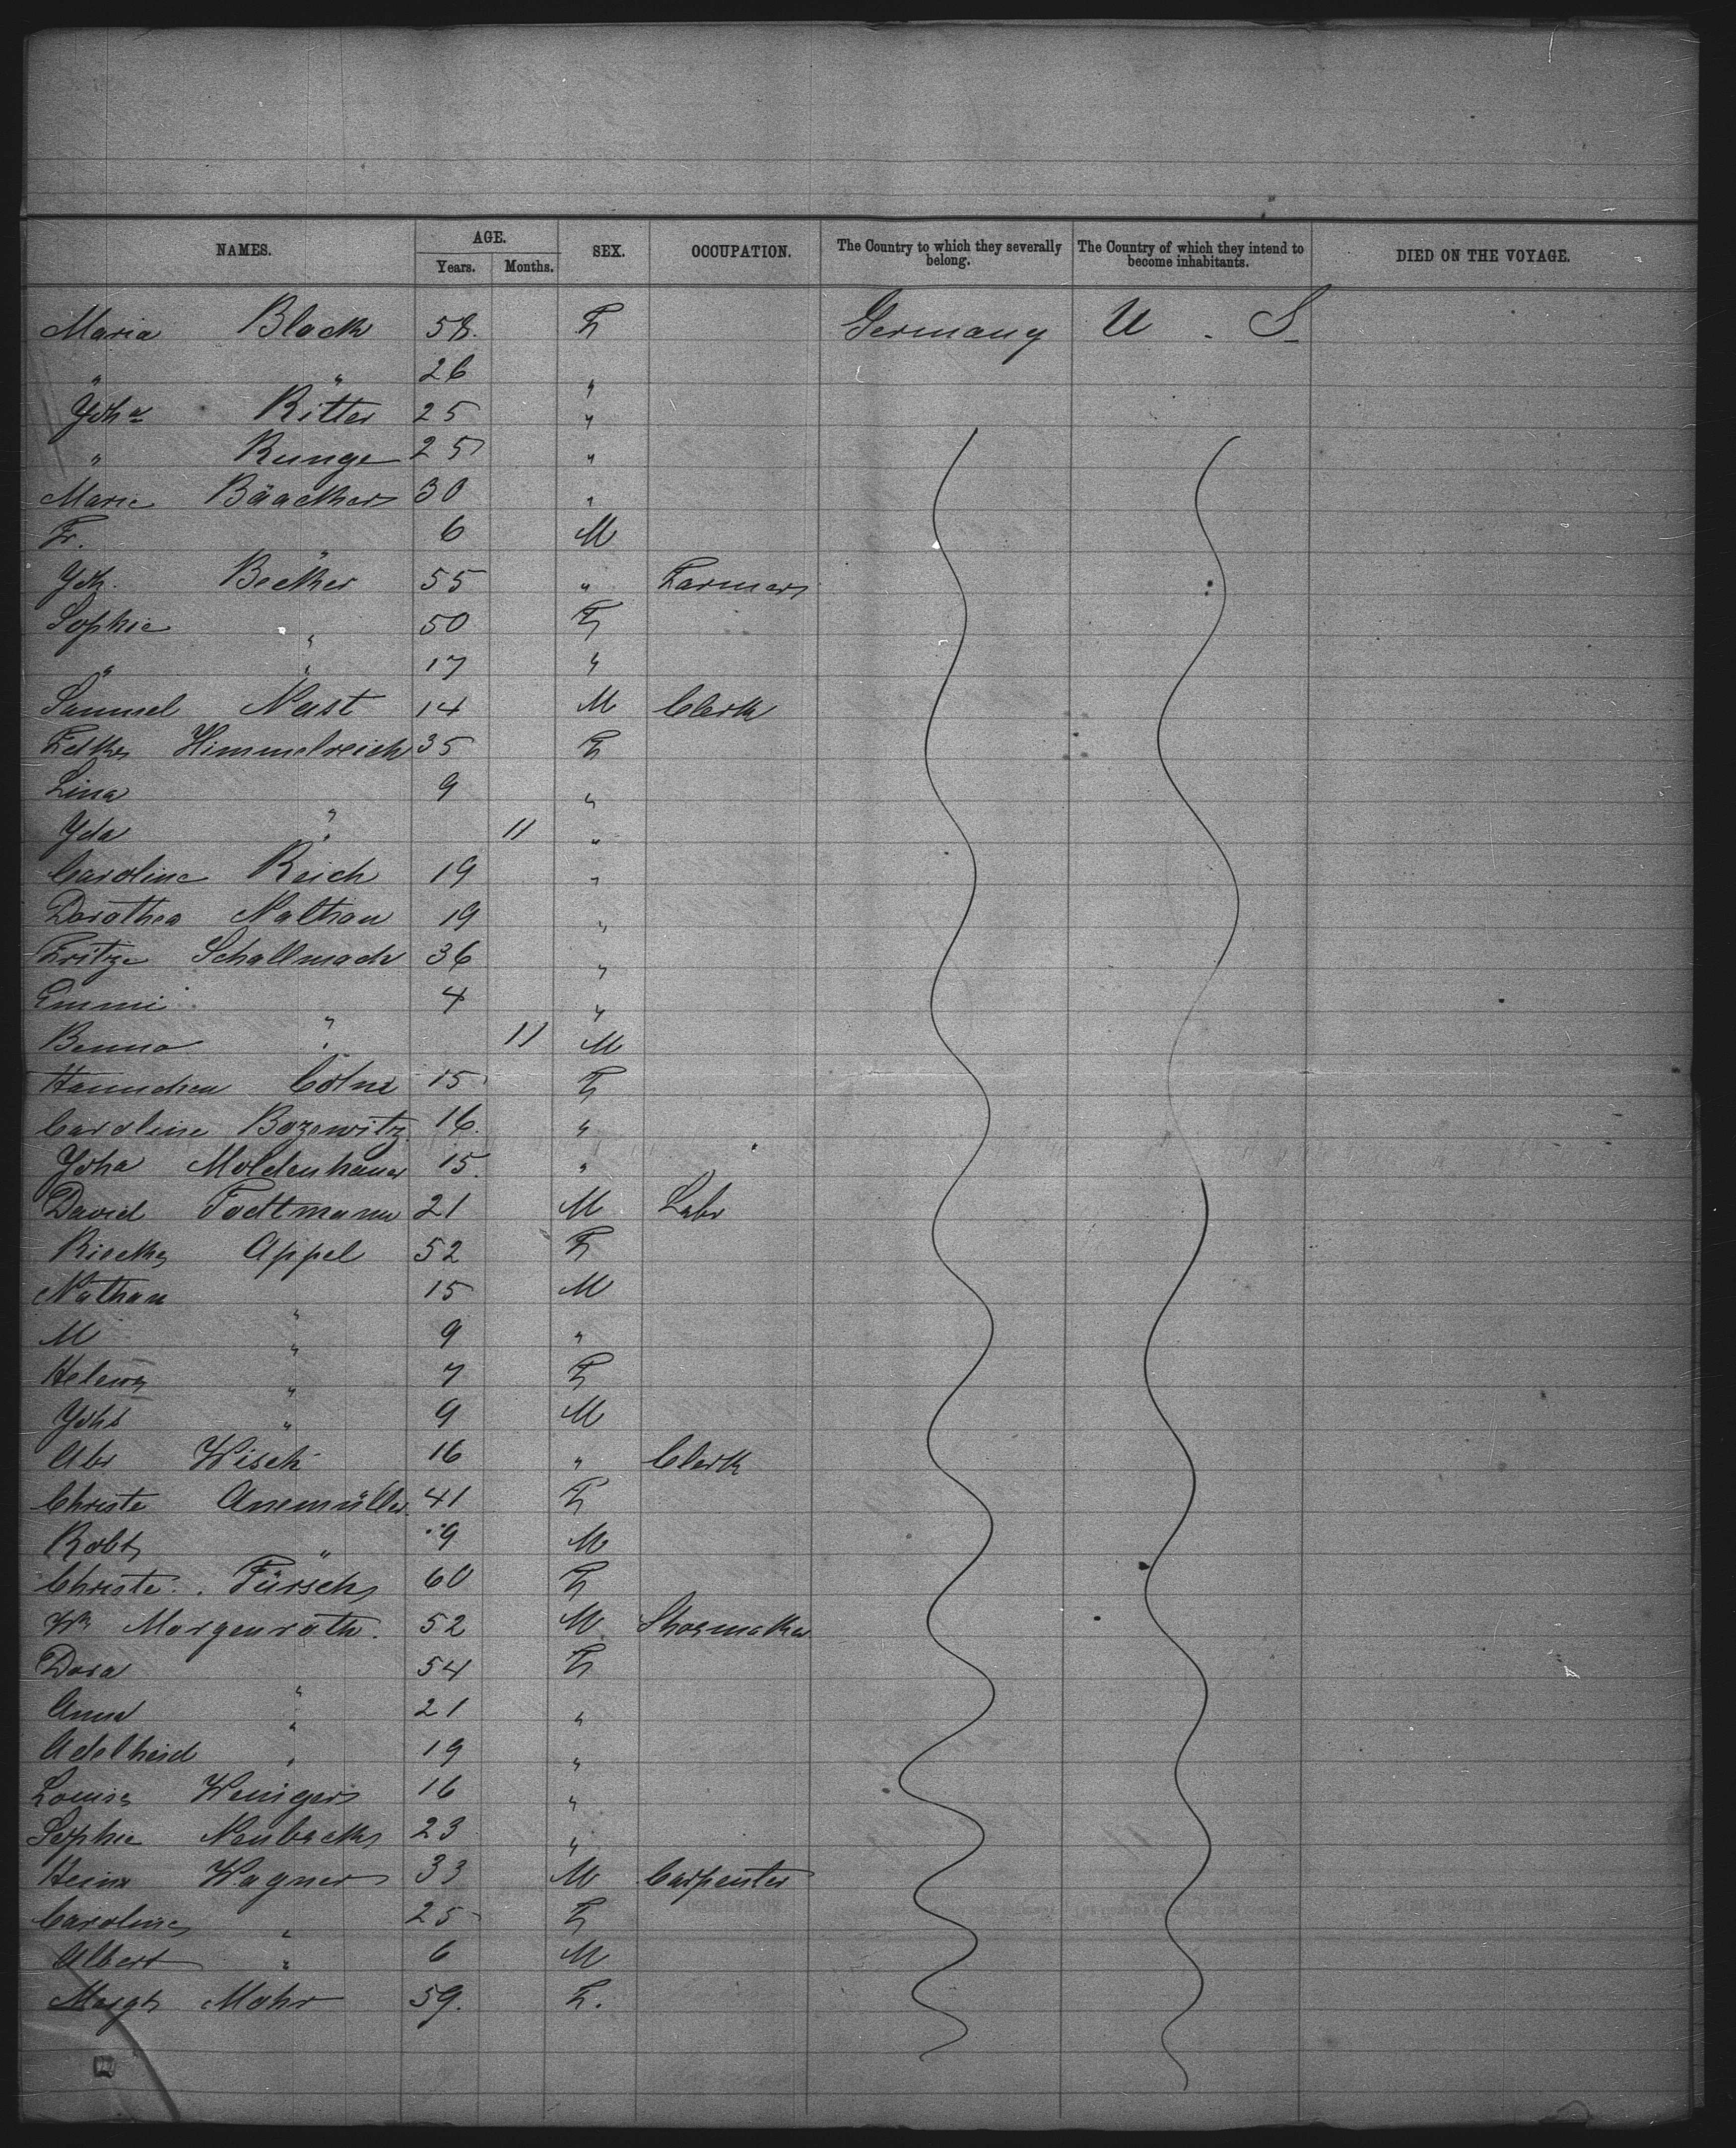 NAMES. AGE. SEX. OCCUPATION. The Country to which they severally belong. The Country of which they intend to become inhabitants. DIED ON THE VOYAGE.
Years. Months.
Maria Block 58. F Germany U. S.
" " 26 "
Joha Ritter 25 "
" Runge 25 "
Marie Bäacker 30 "
Fr. " 6 M
Joh. Becker 55 " Farmer
Sophie " 50 F
" " 17 "
Samuel Nast 14 M Clerk
Himmelreich 35 F
Lina " 9 "
Ida " 11 "
Caroline Reich 19 "
Dorothea Nathan 19 "
Fritze Schallmach 36 "
Emmi " 4 "
Benno " 11 M
Hannchen 15 F
Caroline Bozewitz 16. "
Joha Moldenhauer 15. "
David Todtmann 21 M Labr
Riecke Appel 52 F
Nathan " 15 M
M " 9 "
Helena " 7 F
Johs " 9 M
Abr Wisch 16 " Clerk
Christe Anemüller 41 F
Robt " 9 M
Christe Fürsch 60 F
Wm Morgenroth. 52 M Shoemaker
Dora " 54 F
Anna " 21 "
Adelheid " 19 "
Louise Weniger 16 "
Sophie Neubeck 23 "
Heinr Wagner 33 M Carpenter
Caroline " 25 F
Albert " 6 M
Margt Mohr 59. F.